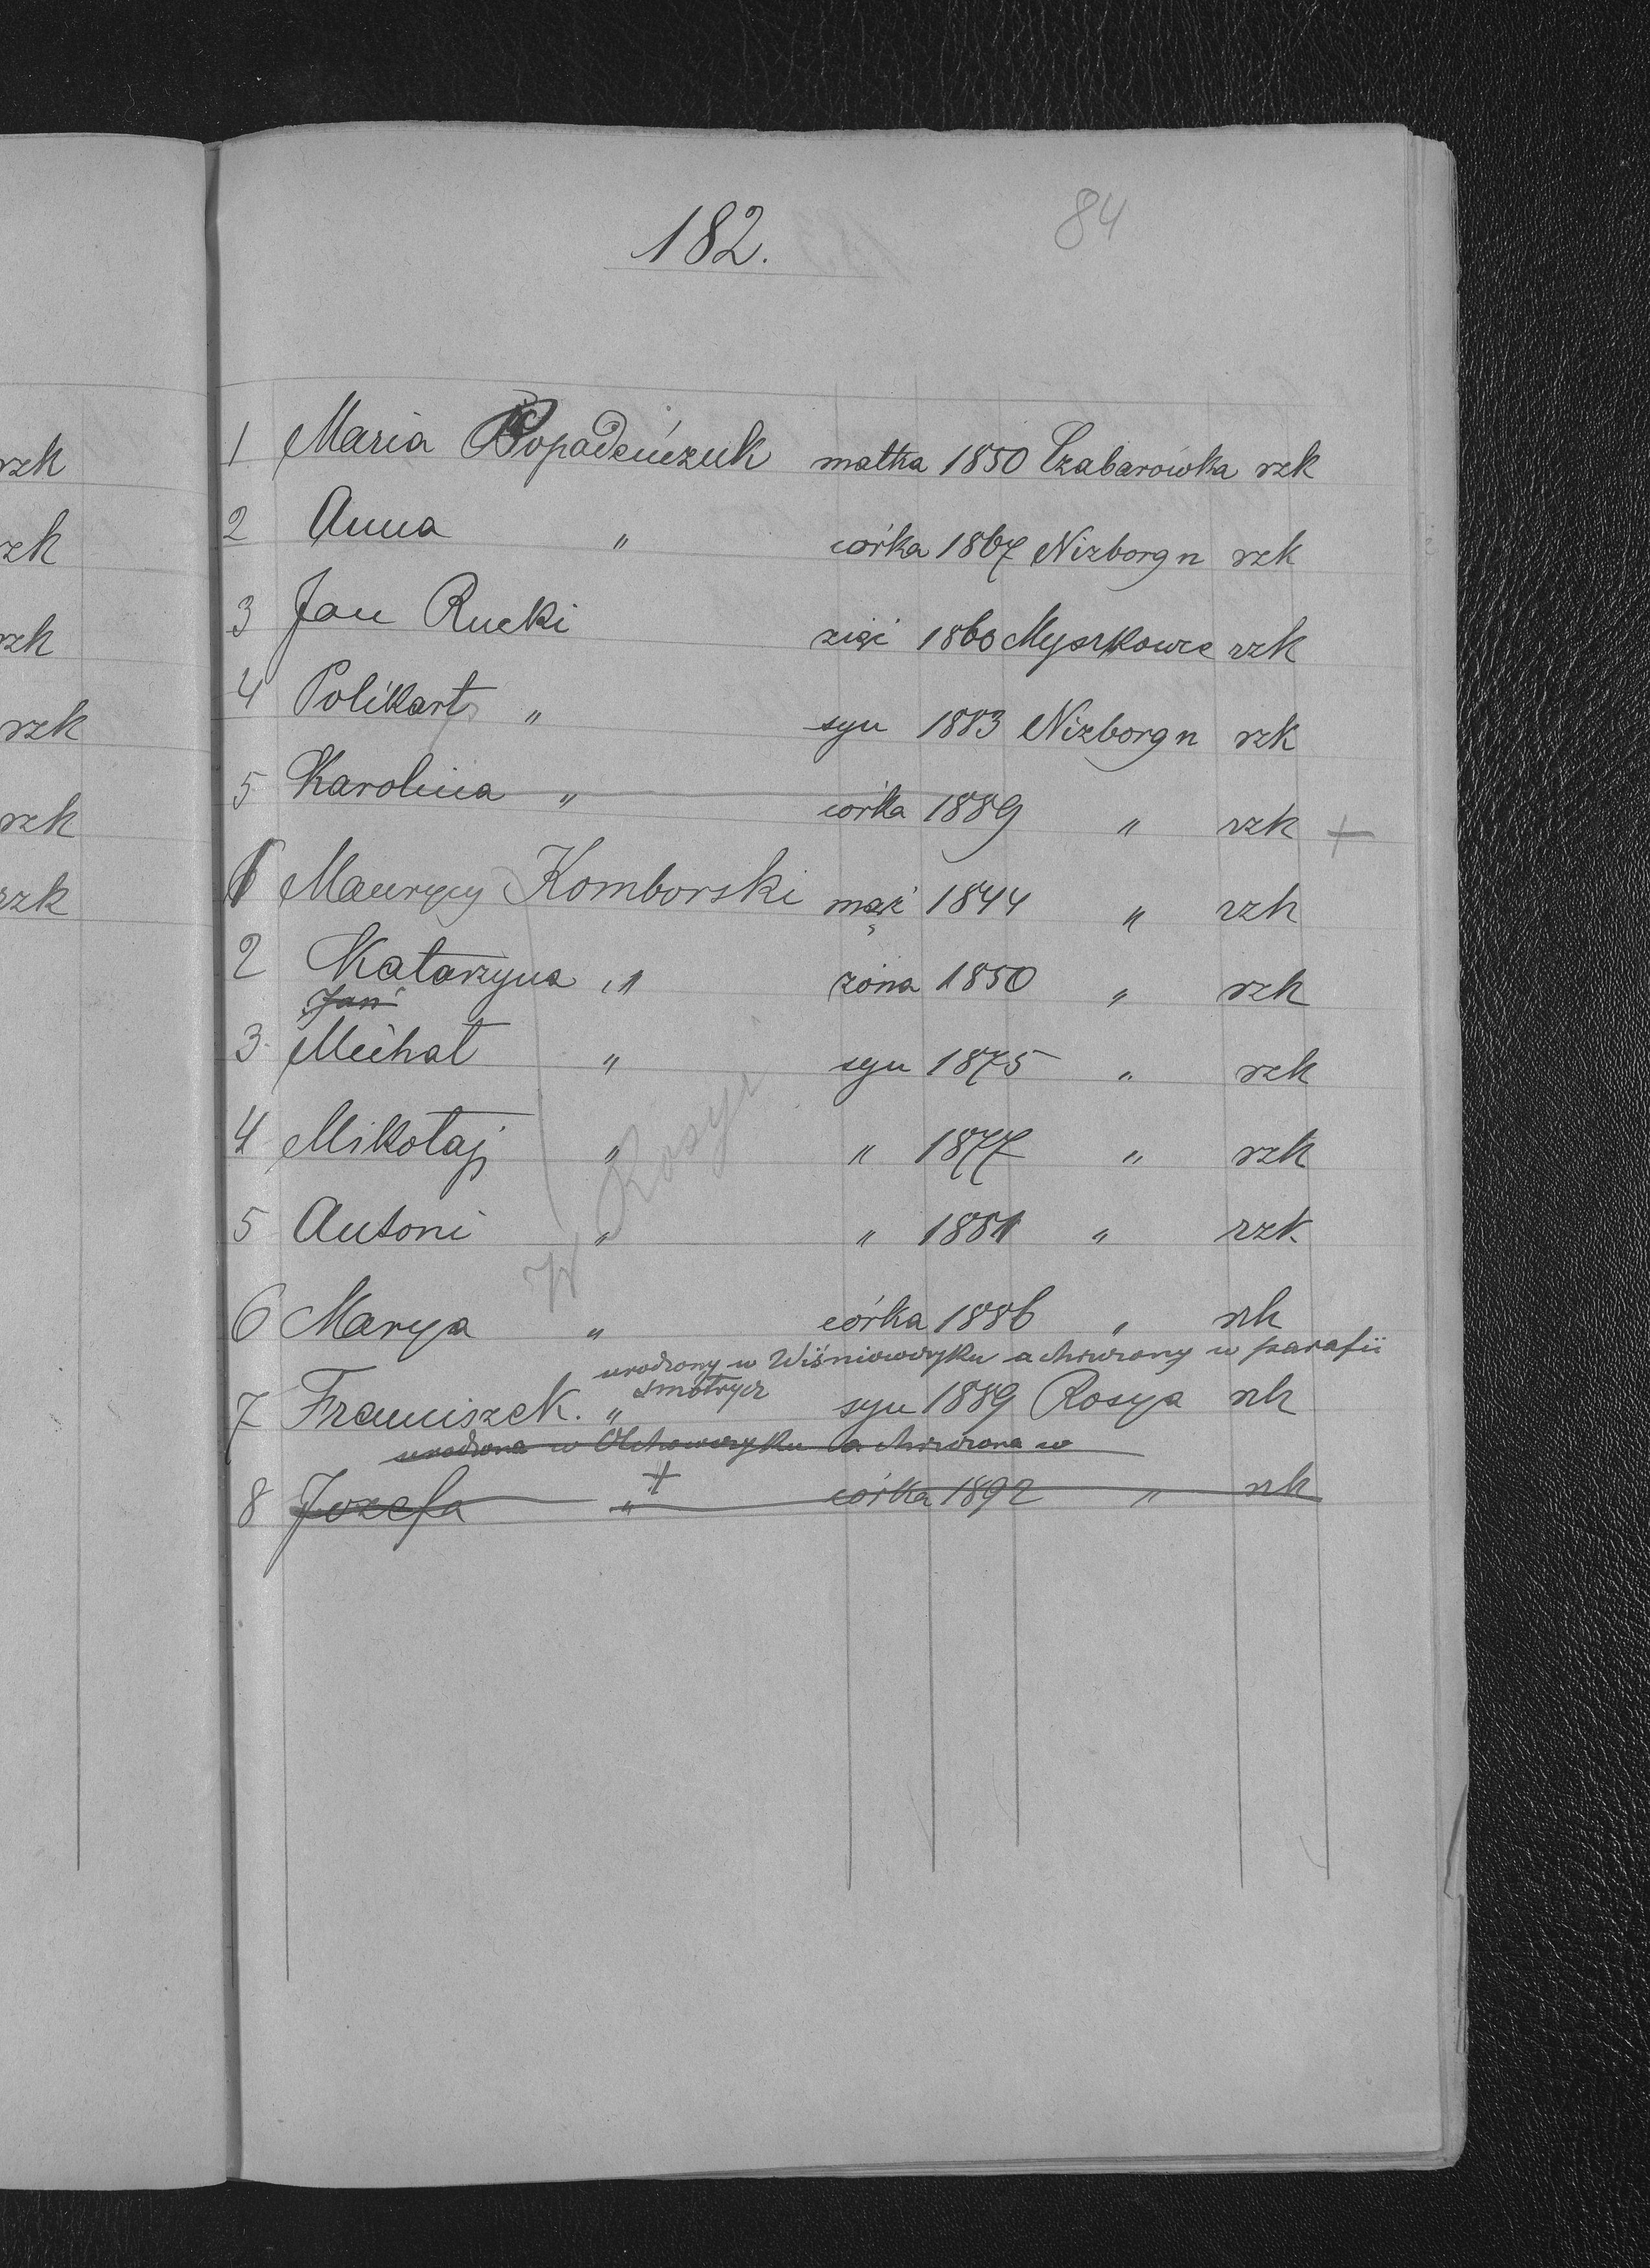 182.
84
1 Maria Popadeńczuk matka 1850 Czabarówka rzk
2 Anna " córka 1867 Niżborg n rzk
3 Jan Rucki zięć 1860 Myszkowce rzk
4 Polikart " syn 1883 Niżborg n rzk
5 Karolina " córka 1889 " rzk +
1 Maurycy Komborski mąż 1844 " rzk
2 Katarzyna " żona 1850 " rzk
Jan
3 Michał " syn 1875 " rzk
4 Mikołaj " " 1877 " rzk
5 Antoni " " 1881 " rzk
6 Marya " córka 1886 " rzk
W Rosyi
urodzony w Wiśniowczyku a chrzczony w parafii
Smotrycz
7 Franciszek. " syn 1889 Rosya rzk
urodzona w Olchowczyku a chrzczona w
8 Jozefa " + córka 1892 " rzk
rzk
rzk
rzk
rzk
rzk
rzk